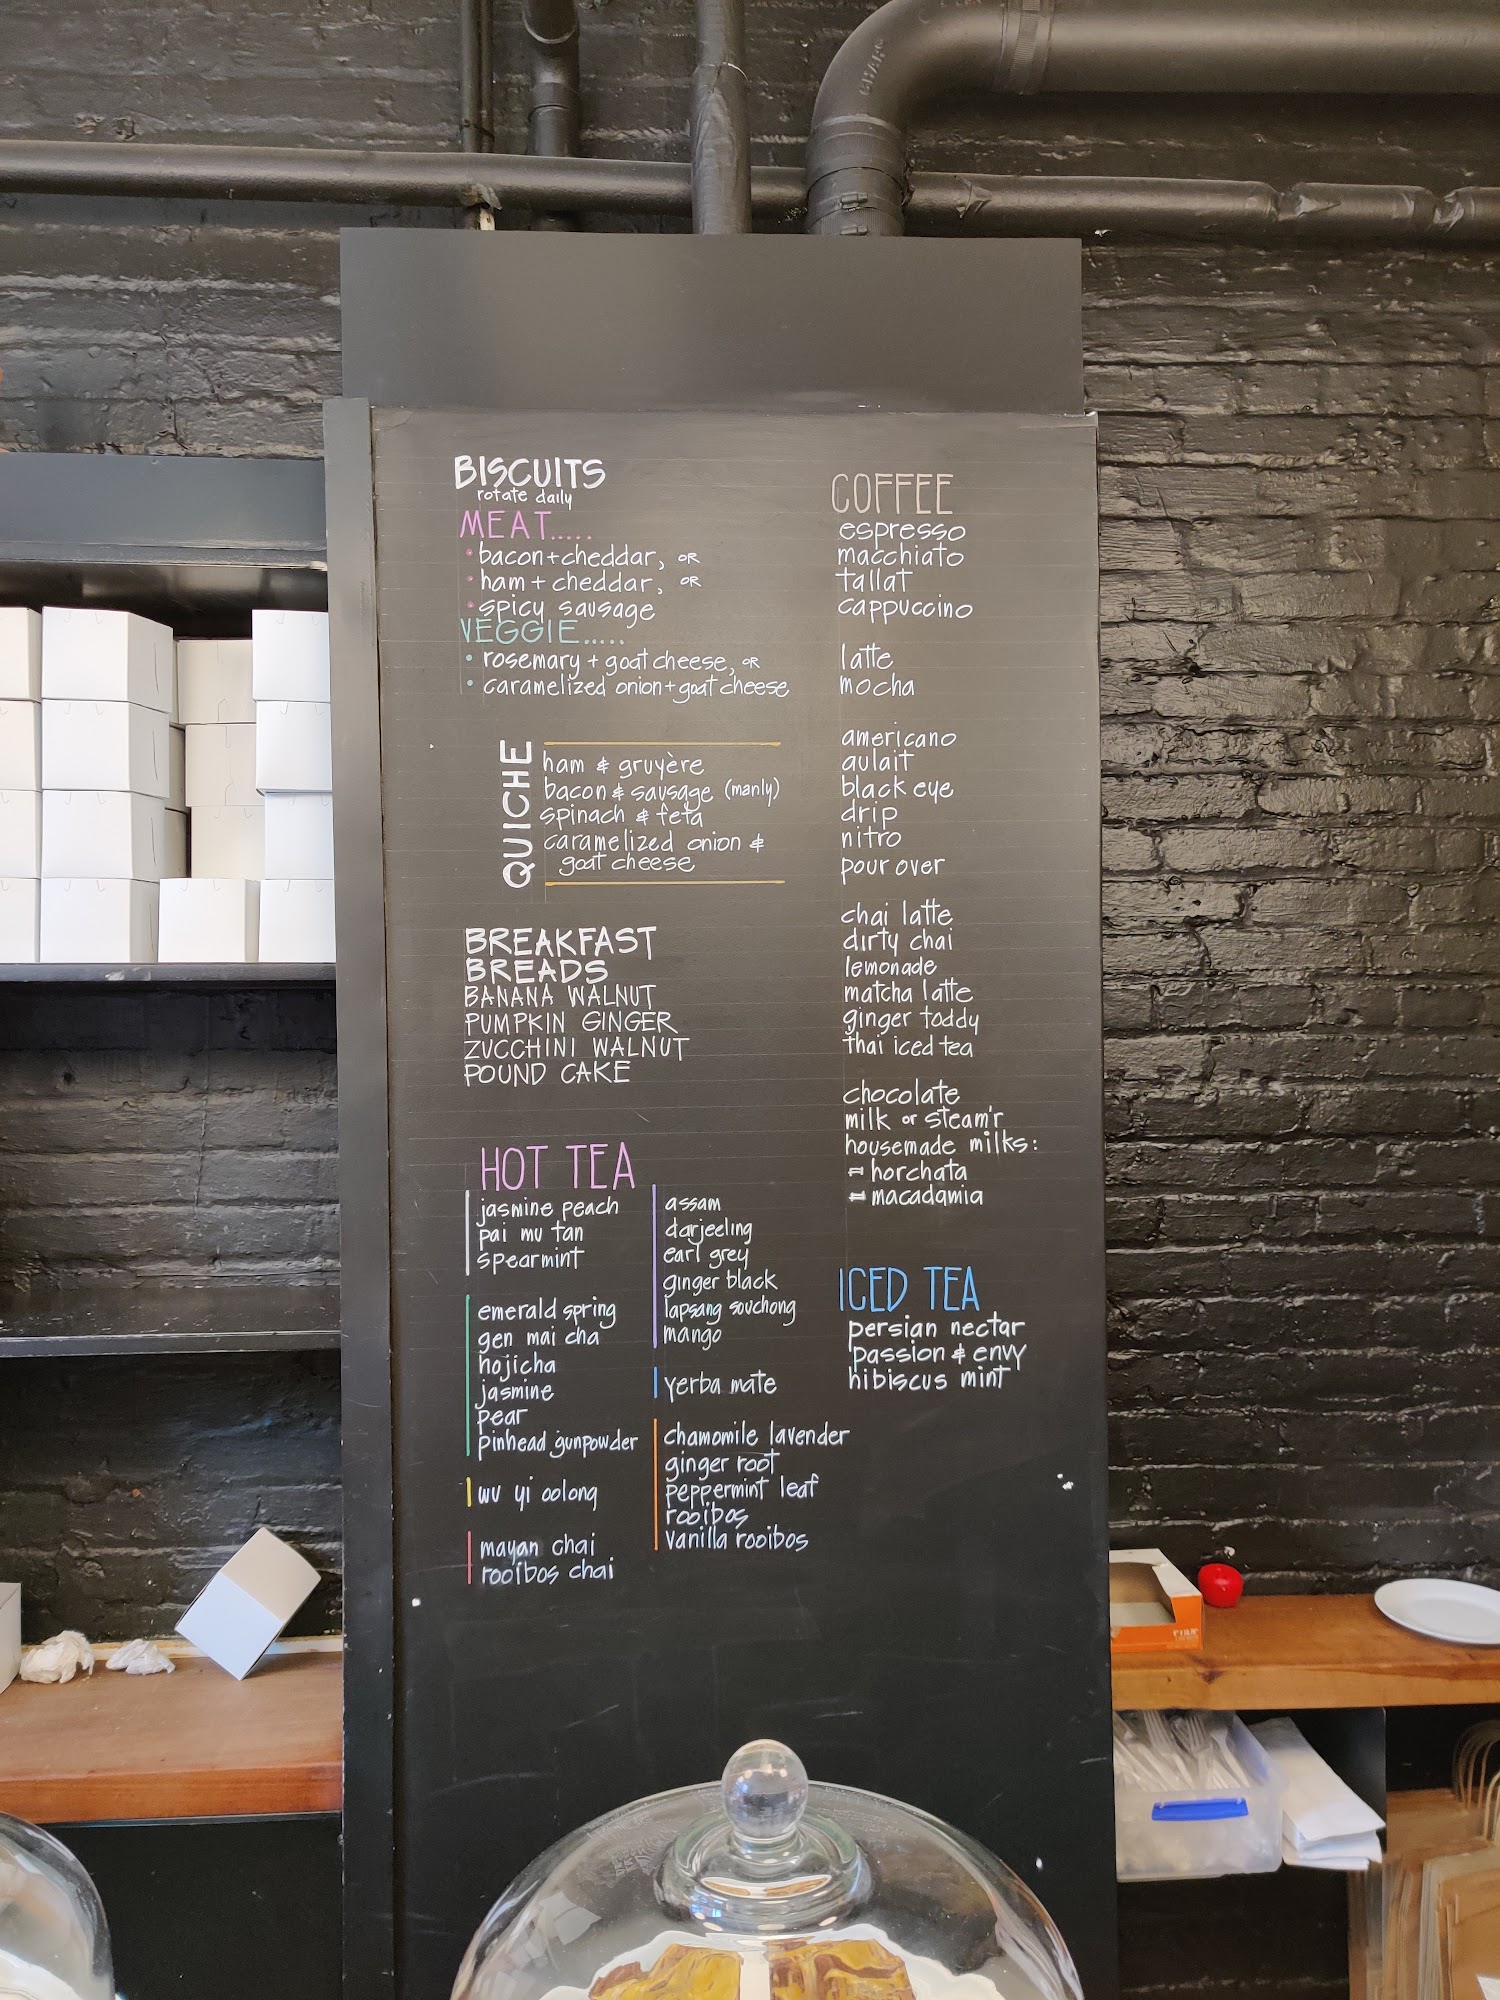 BISCUITS
rotate daily
MEAT.....
• bacon+cheddar, OR
• ham + cheddar, OR
• spicy sausage
VEGGIE.....
• rosemary + goat cheese, OR
• caramelized onion+goat cheese
QUICHE
ham & gruyère
bacon & sausage (manly)
spinach & feta
caramelized onion &
goat cheese
BREAKFAST
BREADS
BANANA WALNUT
PUMPKIN GINGER
ZUCCHINI WALNUT
POUND CAKE
HOT TEA
jasmine peach
pai mu tan
spearmint
emerald spring
gen mai cha
hojicha
jasmine
pear
pinhead gunpowder
wu yi oolong
mayan chai
rooibos chai
assam
darjeeling
earl grey
ginger black
lapsang souchong
mango
yerba mate
chamomile lavender
ginger root
peppermint leaf
rooibos
vanilla rooibos
COFFEE
espresso
macchiato
tallat
cappuccino
latte
mocha
americano
aulait
black eye
drip
nitro
pour over
chai latte
dirty chai
lemonade
matcha latte
ginger toddy
thai iced tea
chocolate
milk or steam'r
housemade milks:
horchata
macadamia
ICED TEA
persian nectar
passion & envy
hibiscus mint